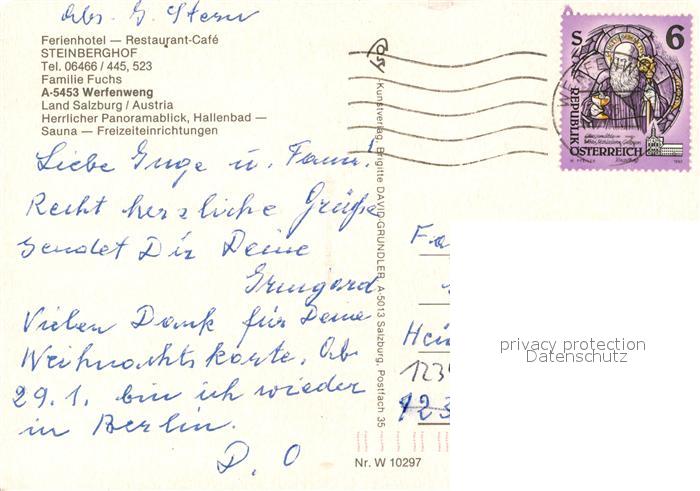 Abs. G. Stern
Ferienhotel — Restaurant-Café
STEINBERGHOF
Tel. 06466 / 445, 523
Familie Fuchs
A-5453 Werfenweng
Land Salzburg / Austria
Herrlicher Panoramablick, Hallenbad —
Sauna — Freizeiteinrichtungen
Liebe Inge u. Fam.!
Recht herzliche Grüße
sendet Dir Deine
Irmgard
Vielen Dank für Deine
Weihnachtskarte. Ab
29.1. bin ich wieder
in Berlin.
D. O
Kunstverlag Brigitte DAVID-GRÜNDLER, A-5013 Salzburg, Postfach 35
Nr. W 10297
S 6
REPUBLIK
ÖSTERREICH
WERFEN
Fa
Hei
123
123
privacy protection
Datenschutz